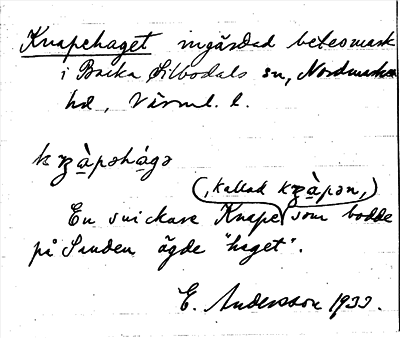 Knapehaget ingärdad betesmark
i Backa Silbodals sn, Nordmarks
hd, Värml. l.
kꞃàpəhágə
(, kallad kꞃàpən,)
En snickare Knape som bodde
på Sanden ägde "haget".
E. Andersson 1933.